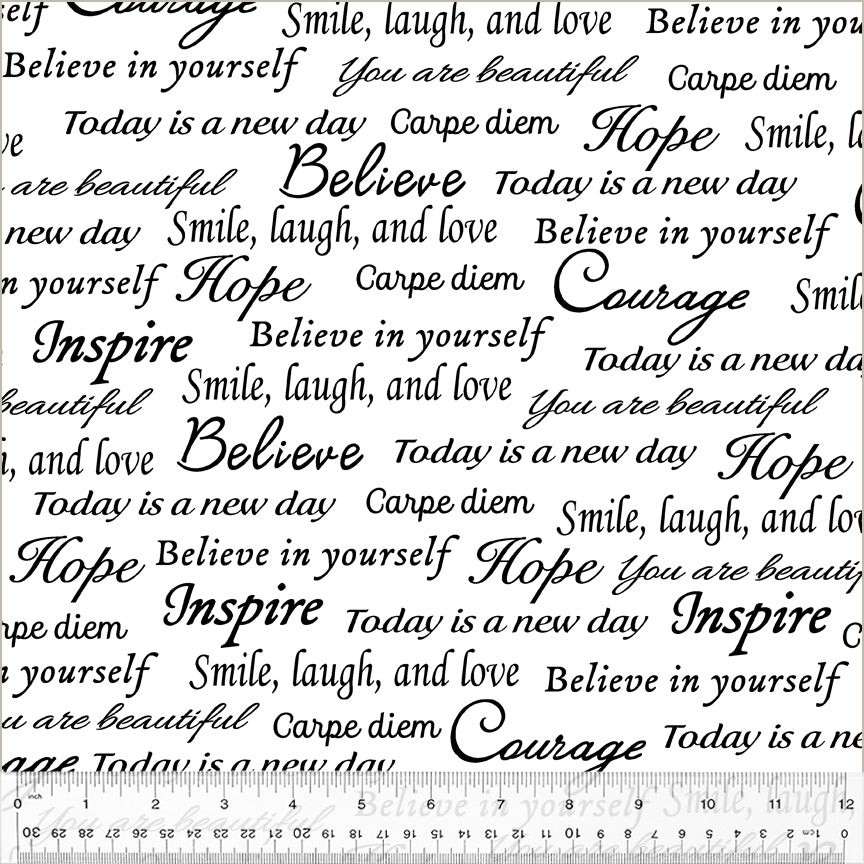 self Courage Smile, laugh, and love Believe in you
Believe in yourself You are beautiful Carpe diem
ve Today is a new day Carpe diem Hope Smile, l
are beautiful Believe Today is a new day
new day Smile, laugh, and love Believe in yourself
n yourself Hope Carpe diem Courage Smil
Inspire Believe in yourself Today is a new da
beautiful Smile, laugh, and love You are beautiful
h, and love Believe Today is a new day Hope
Today is a new day Carpe diem Smile, laugh, and lov
Hope Believe in yourself Hope You are beautif
rpe diem Inspire Today is a new day Inspire C
n yourself Smile, laugh, and love Believe in yourself
u are beautiful Carpe diem Courage Today is a ne
age Today is a new day
0 inch 1 2 3 4 5 6 7 8 9 10 11 12
Believe in yourself Smile, laugh,
You are beautiful
30 29 28 27 26 25 24 23 22 21 20 19 18 17 16 15 14 13 12 11 10 9 8 7 6 5 4 3 2 1cm 0
You are beautiful